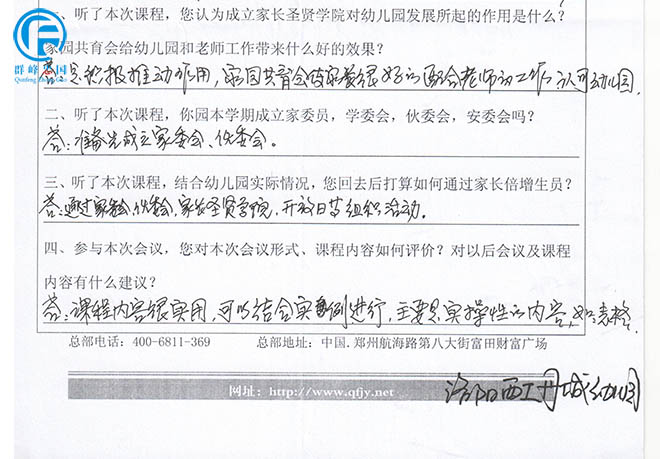 一、听了本次课程，您认为成立家长圣贤学院对幼儿园发展所起的作用是什么？
群峰 国
家园共育会给幼儿园和老师工作带来什么好的效果？
答：是积极推动作用，家园共育会使家长很好的配合老师的工作，认可幼儿园．
二、听了本次课程，你园本学期成立家委员，学委会，伙委会，安委会吗？
答：准备先成立家委会、伙委会。
三、听了本次课程，结合幼儿园实际情况，您回去后打算如何通过家长倍增生员？
答：通过家委会，伙委会，家长圣贤学院，开放日等组织活动。
四、参与本次会议，您对本次会议形式、课程内容如何评价？对以后会议及课程
内容有什么建议？
答：课程内容很实用，可以结合实例进行，主要是实操性的内容，如：表格．
总部电话：400-6811-369 总部地址：中国．郑州航海路第八大街富田财富广场
网址：http://www.qfjy.net
洛阳西工丹城幼儿园